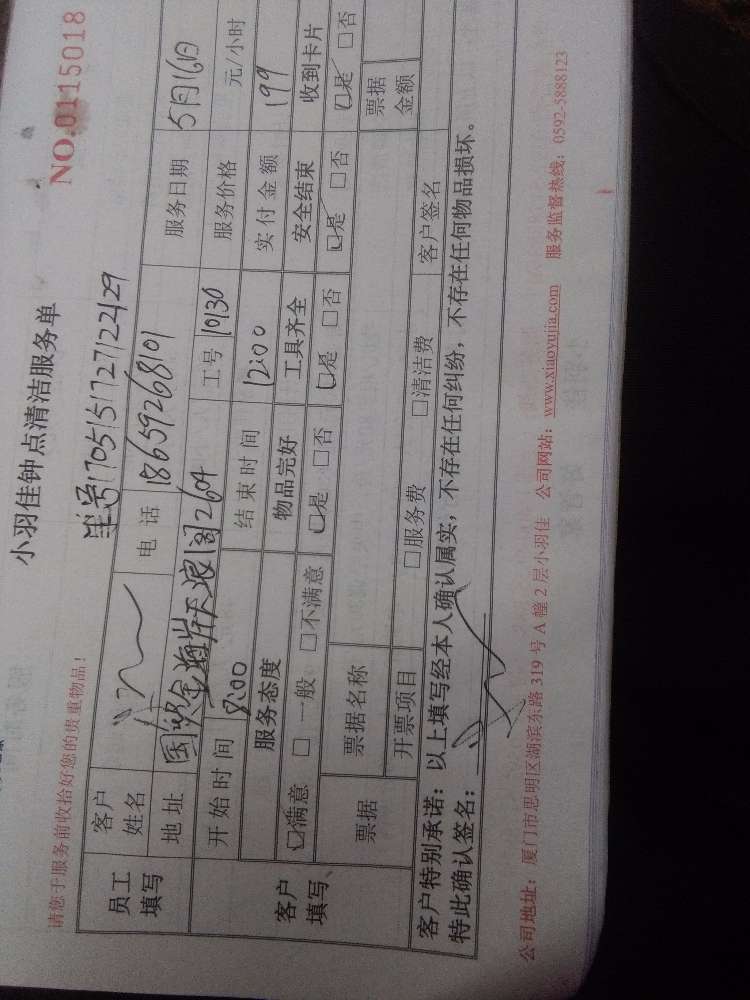 小羽佳钟点清洁服务单
NO.0115018
请您于服务前收拾好您的贵重物品!
单号170515172712229
员工填写
客户姓名
电话 18659268101
服务日期 5月16日
地址 国贸金海岸天浪阁2604
工号 10130
服务价格 元/小时
客户填写
开始时间 8:00
结束时间 12:00
实付金额 199
服务态度 物品完好 工具齐全 安全结束 收到卡片
□满意 □一般 □不满意 □是 □否 □是 □否 □是 □否 □是 □否
票据
票据名称
票据金额
开票项目 □服务费 □清洁费 客户签名
客户特别承诺:以上填写经本人确认属实,不存在任何纠纷,不存在任何物品损坏。
特此确认签名:
公司地址:厦门市思明区湖滨东路319号A幢2层小羽佳 公司网站:www.xiaoyujia.com 服务监督热线:0592-5888123